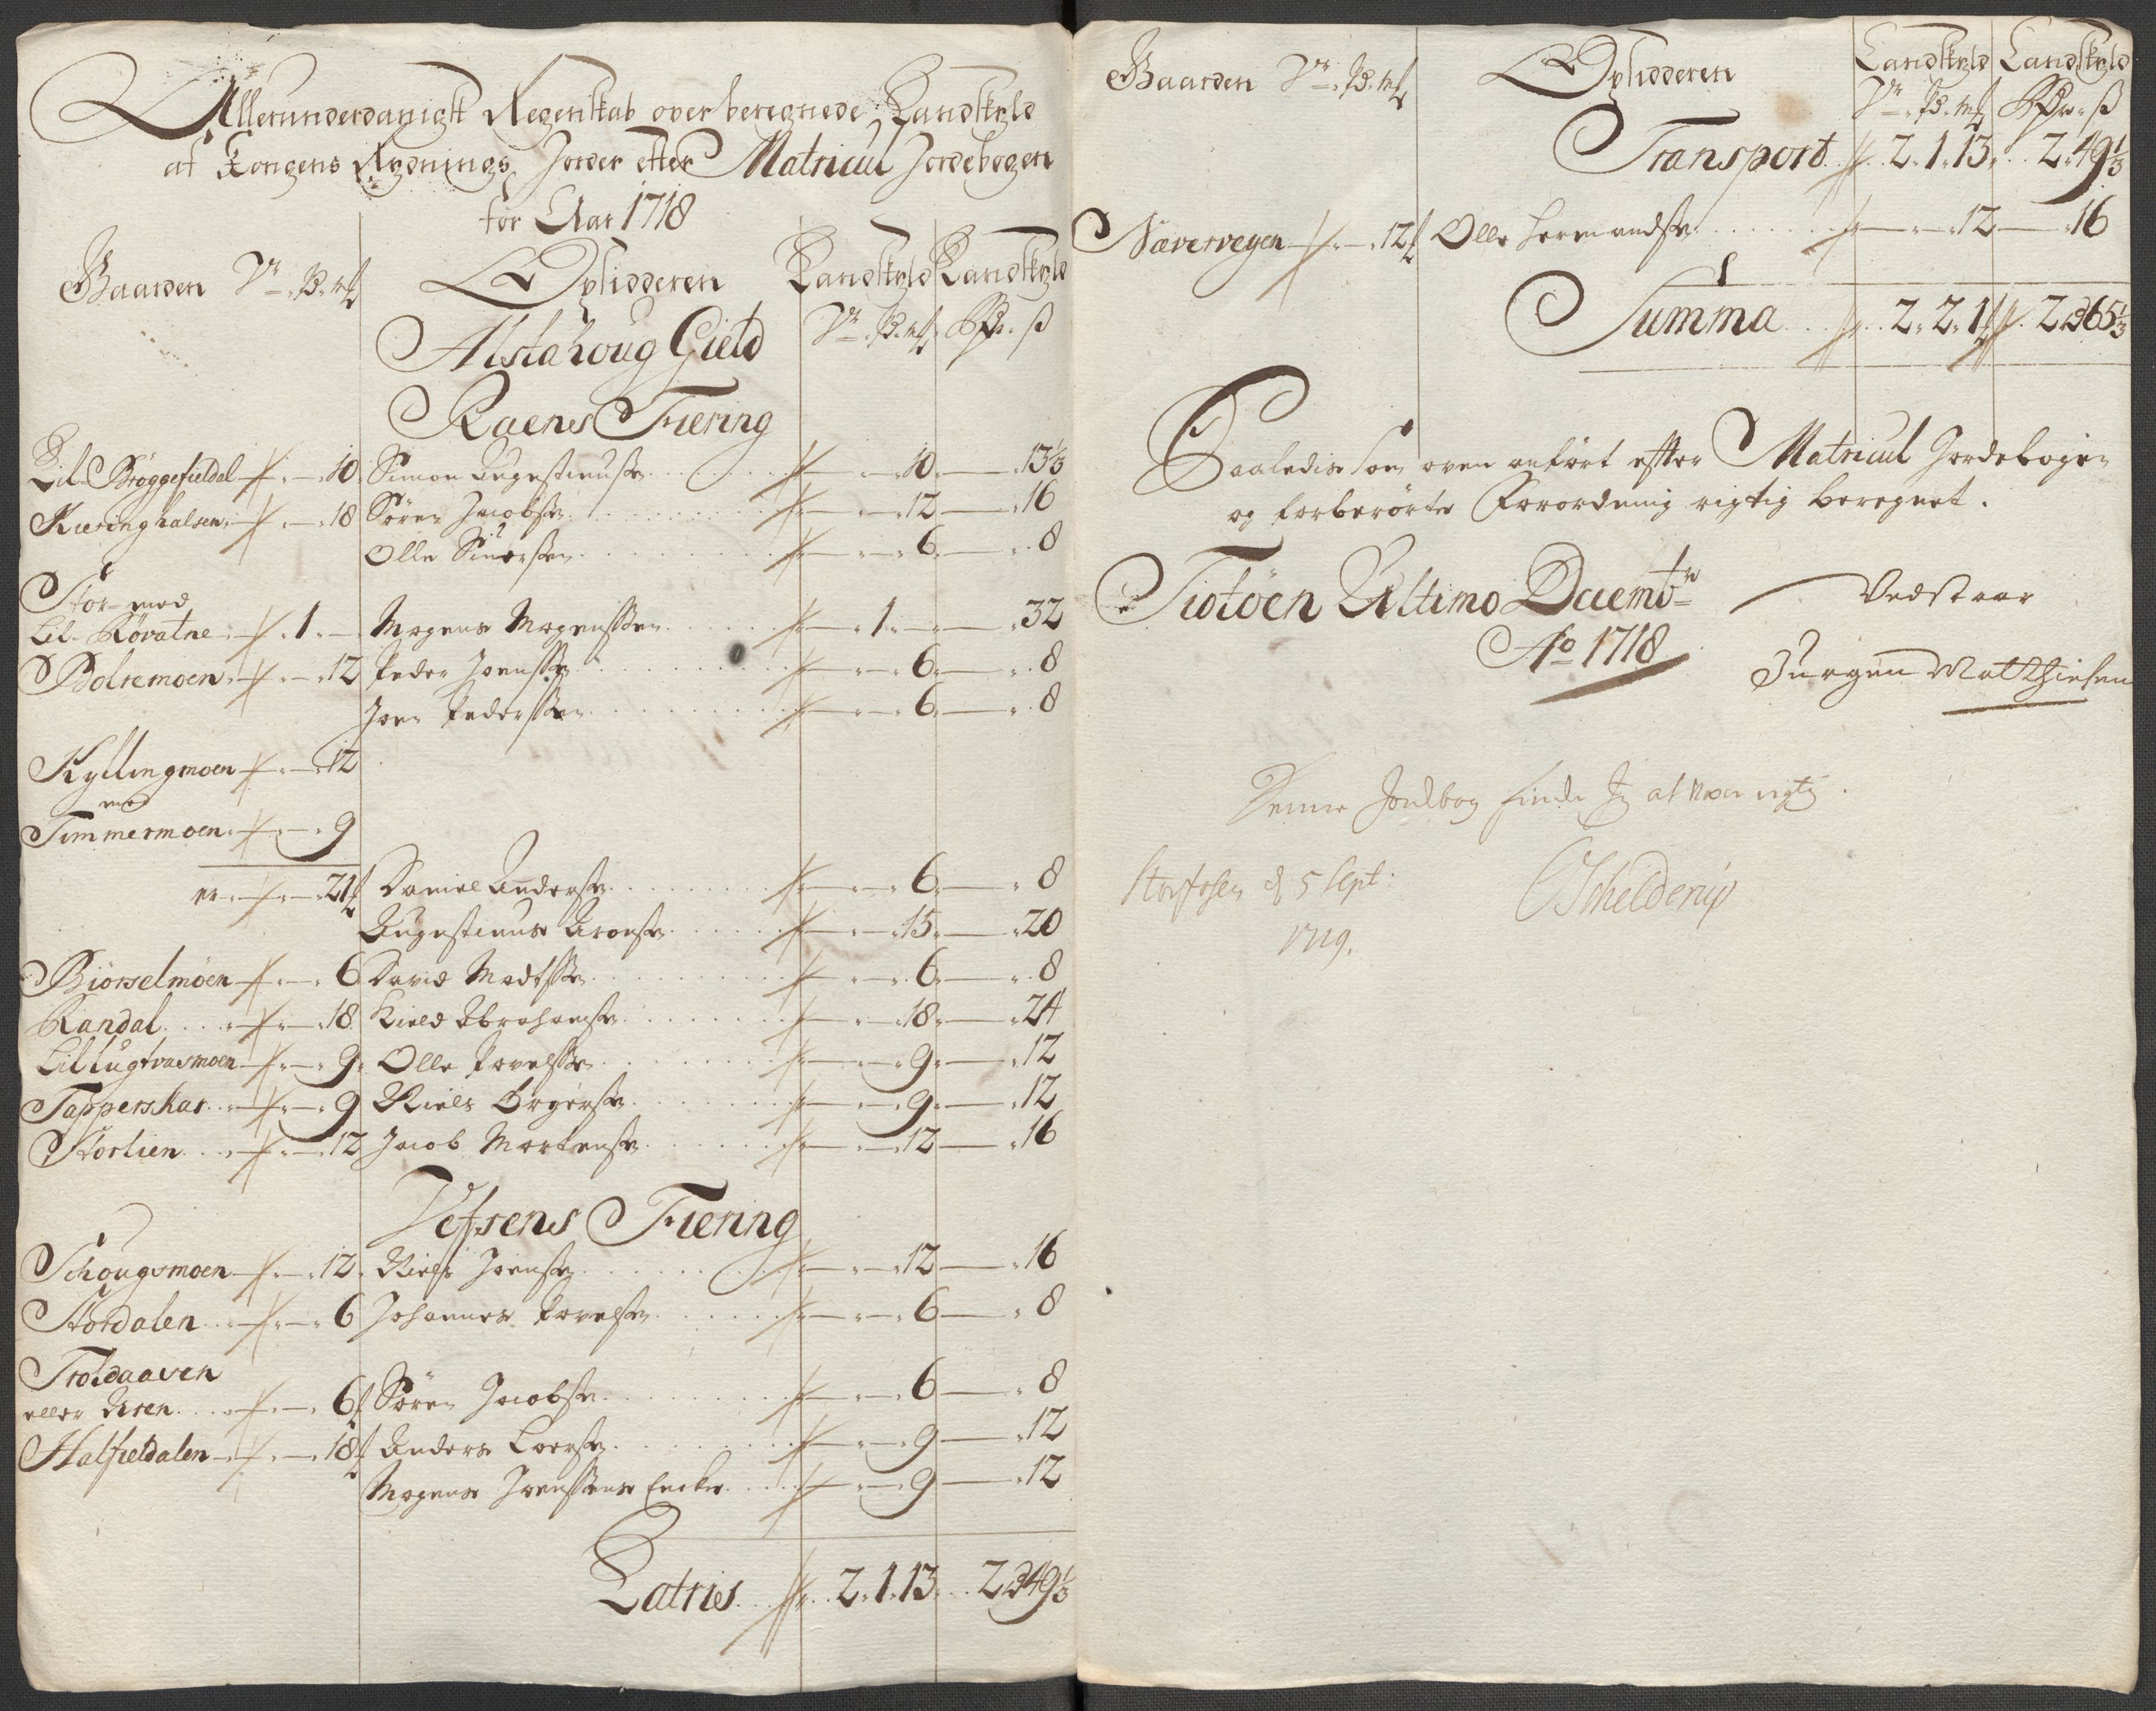 Allerunderdanigst Regenskab over beregnede Landskyld
af Kongens Rydnings Jorder efter Matricul Jordebogen
for Aar 1718
Gaarden V. Pd. mk Opsidderen Landskyld Landskyld
V. Pd. mk Rdr. ß
Alstahoug Gield
Raens Fiering
Lil Brøggefieldal 10 Simon Augustinusn 10 13⅓
Kieringhalsen 18 Søren Jacobsn 12 16
Olle Siversen 6 8
Stor med
Lil Røvatne 1 Mogens Mogenssen 1 32
Bolremoen 12 Peder Joenssn 6 8
Joen Pederssen 6 8
Kyllingmoen 12
med
Timmermoen 9
er 21 Daniel Andersn 6 8
Augustinus Aronsn 15 20
Biørselmoen 6 David Madtssn 6 8
Randal 18 Kield Abrahamsn 18 24
Lil lugtvasmoen 9 Olle Povelssn 9 12
Tapperskar 9 Niels Børgersn 9 12
Storlien 12 Jacob Mortensn 12 16
Vefsens Fiering
Schougsmoen 12 Niels Joensn 12 16
Stordalen 6 Johannes Povelsn 6 8
Troldaaven
eller Aren 6 Søren Jacobsn 6 8
Halfieldalen 18 Anders Larsn 9 12
Mogens Joenssens Encke 9 12
Latris 2. 1. 13 2. 49⅓
Gaarden V. Pd. mk Opsidderen Landskyld Landskyld
V. Pd. mk Rdr. ß
Transport 2. 1. 13 2. 49⅓
Næverveyen 12 Olle Hermandsn 12 16
Summa 2. 2. 1 2. 65⅓
Saaledis som oven anført efter Matricul Jordebogen
og forberørte Forordning rigtig beregnet.
Tiotøen Ultimo Decembr Vedstaar
Ao 1718 Jurgen Matthiesen
Denne Jordbog finde Jeg at være rigtig.
Storfosen d 5 Sept: Schelderup
1719.